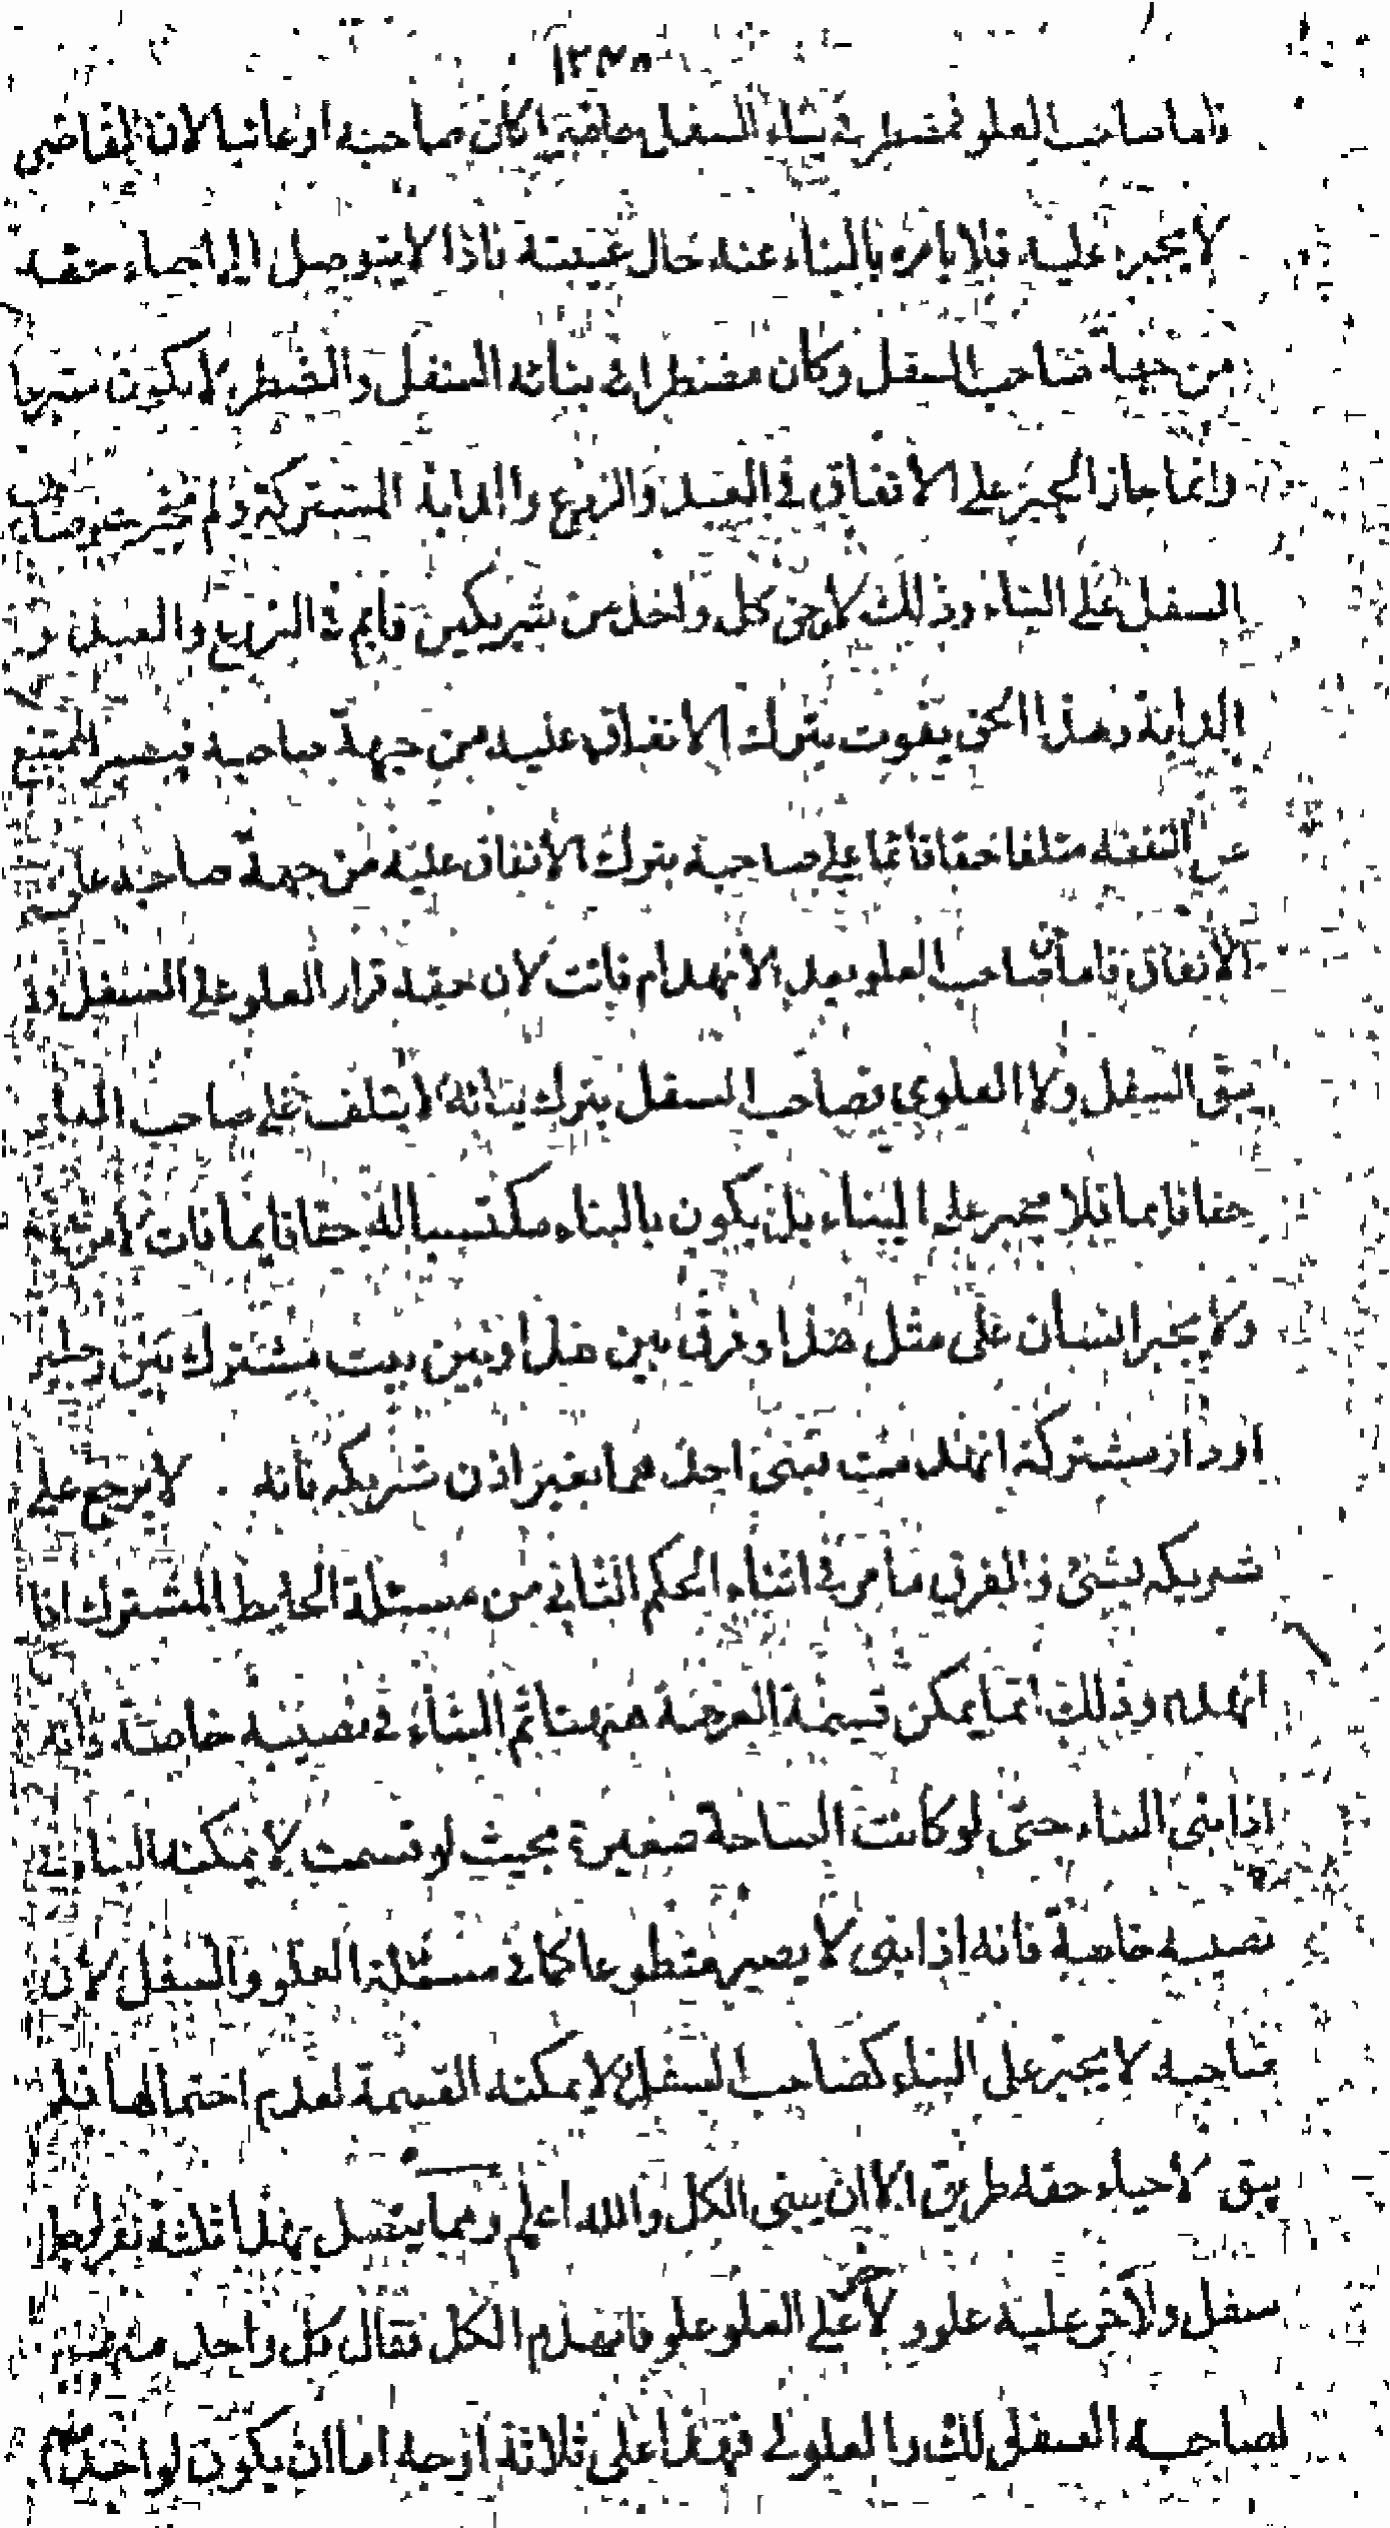 فاما صاحب العلو فمضطر في بناء السفل حاضرا كان صاحبه او غائبا لان القاضي
لا يجبره عليه فلا يامره بالبناء عند حال غيبته فاذا لا يتوصل الى احياء حقه
من جهة صاحب السفل وكان مضطرا في بنائه السفل والمضطر لا يكون متبرعا
وانما جاز الجبر على الانفاق في العبد والزرع والدابة المشتركة ولم يجبر صاحب
السفل على البناء وذلك لان حق كل واحد من شريكين قايم في الزرع والعبد و
الدابة وهذا الحق يفوت بترك الانفاق عليه من جهة صاحبه فيصير الممتنع
عن النفقة متلفا حقا قائما على صاحبه بترك الانفاق عليه من جهة صاحبه على
الانفاق فاما حق صاحب العلو بعد الانهدام فائت لان حقه قرار العلو على السفل ولم
يبق السفل ولا العلوي فصاحب السفل بترك بنائه لا يتلف على صاحب العلو
حقا قايما فلا يجبر على البناء بل يكون بالبناء مكتسبا له حقا قايما فات
ولا يجبر انسان على مثل هذا وفرق بين هذا وبين بيت مشترك بين رجلين
او دار مشتركة انهدمت فبنى احدهما بغير اذن شريكه فانه لا يرجع على
شريكه بشئ والفرق ما مر في اثناء الحكم الثاني من مسئلة الحايط المشترك اذا
انهدم وذلك انما يمكن قسمة العرصة ههنا ثم البناء في نصيبه خاصة وانه
اذا بنى البناء حتى لو كانت الساحة صغيرة بحيث لو قسمت لا يمكنه البناء في
نصيبه خاصة فانه اذا بنى لا يصير متطوعا كما في مسئلة العلو والسفل لان
صاحبه لا يجبر على البناء كصاحب السفل ولا يمكنه القسمة لعدم احتمالها فلم
يبق لاحياء حقه طريق الا ان يبنى الكل والله اعلم ومما يتصل بهذا ثلثة نفر لواحد
سفل والآخر عليه علو ولآخر على العلو علو فانهدم الكل فقال كل واحد منهم
لصاحبه السفل لك والعلو لي فهذا على ثلاثة اوجه اما ان يكون لواحد منهم